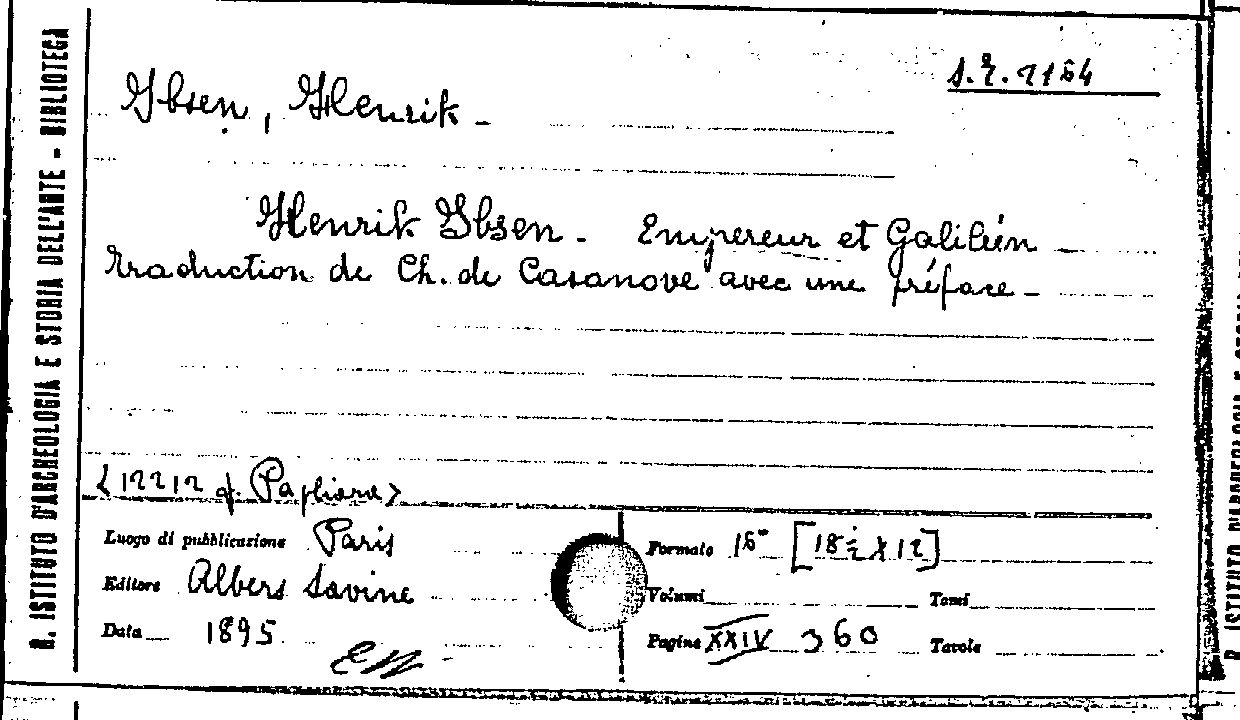 R. ISTITUTO D'ARCHEOLOGIA E STORIA DELL'ARTE - BIBLIOTECA
Ibsen, Henrik. -
Henrik Ibsen. - Empereur et Galiléen -
traduction de Ch. de Casanove avec une préface -
<12212 d. Pagliara>
Luogo di pubblicazione Paris
Editore Albert Savine
Data 1895
Formato 16° [18 ½ x 12]
Volumi Tomi
Pagine XXIV 360 Tavole